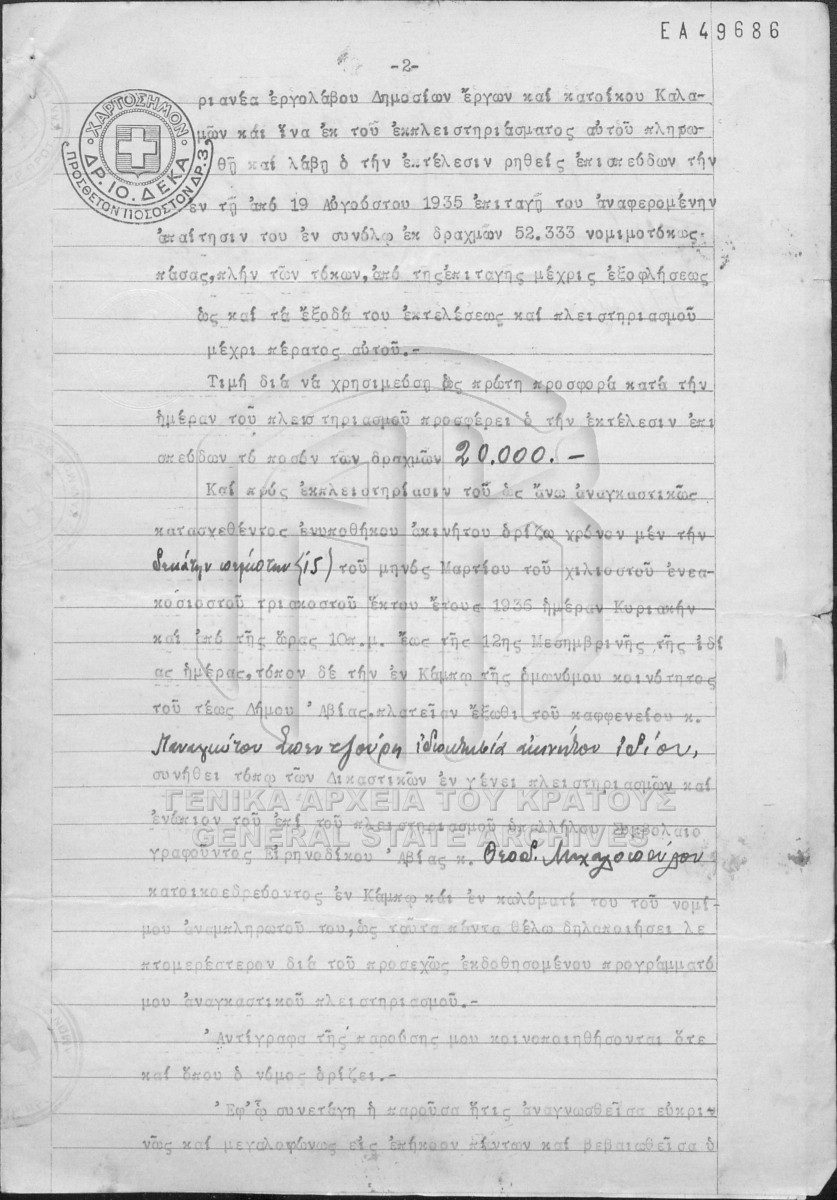 ΕΑ49686
-2-
ριανέα ἐργολάβου Δημοσίων ἔργων καί κατοίκου Καλα-
μῶν καί ἵνα ἐκ τοῦ ἐκπλειστηριάσματος αὐτοῦ πληρω-
θῇ καί λάβῃ ὁ τήν ἐκτέλεσιν ρηθείς ἐπισπεύδων τήν
ἐν τῇ ἀπό 19 Αὐγούστου 1935 ἐπιταγῇ του ἀναφερομένην
ἀπαίτησιν του ἐν συνόλῳ ἐκ δραχμῶν 52.333 νομιμοτόκως
πάσας,πλήν τῶν τόκων,ἀπό τῆςἐπιταγῆς μέχρις ἐξοφλήσεως
ὡς καί τά ἔξοδά του ἐκτελέσεως καί πλειστηριασμοῦ
μέχρι πέρατος αὐτοῦ.-
Τιμή διά νά χρησιμεύσῃ ὡς πρώτη προσφορά κατά τήν
ἡμέραν τοῦ πλειστηριασμοῦ προσφέρει ὁ τήν ἐκτέλεσιν ἐπι
σπεύδων τό ποσόν τῶν δραχμῶν 20.000.-
Καί πρός ἐκπλειστηρίασιν τοῦ ὡς ἄνω ἀναγκαστικῶς
κατασχεθέντος ἐνυποθήκου ἀκινήτου ὁρίζω χρόνον μέν τήν
δεκάτην πέμπτην (15) τοῦ μηνός Μαρτίου τοῦ χιλιοστοῦ ἐνεα-
κοσιοστοῦ τριακοστοῦ ἕκτου ἔτους 1936 ἡμέραν Κυριακήν
καί ἀπό τῆς ὥρας 10π.μ. ἕως τῆς 12ης Μεσημβρινῆς τῆς ἰδί
ας ἡμέρας,τόπον δέ τήν ἐν Κάμπῳ τῆς ὁμωνύμου κοινότητος
τοῦ τέως Δήμου Ἀβίας πλατεῖαν ἔξωθι τοῦ καφφενείου κ.
Παναγιώτου ἰδιοκτησία ἀκινήτου ἰδίου,
συνήθει τόπῳ τῶν Δικαστικῶν ἐν γένει πλειστηριασμῶν καί
ἐνώπιον τοῦ ἐπί τοῦ πλειστηριασμοῦ ὑπαλλήλου Συμβολαιο
γραφοῦντος Εἰρηνοδίκου Ἀβίας κ. Θεοδ. Μιχαλοπούλου
κατοικοεδρεύοντος ἐν Κάμπῳ καί ἐν κωλύματί του τοῦ νομί
μου ἀναμπληρωτοῦ του,ὡς ταῦτα πάντα θέλω δηλοποιήσει λε
πτομερέστερον διά τοῦ προσεχῶς ἐκδοθησομένου προγράμματό
μου ἀναγκαστικοῦ πλειστηριασμοῦ.-
Ἀντίγραφα τῆς παρούσης μου κοινοποιηθήσονται ὅτε
καί ὅπου ὁ νόμος ὁρίζει.-
Ἐφ' ᾧ συνετάγη ἡ παροῦσα ἥτις ἀναγνωσθεῖσα εὐκρι-
νῶς καί μεγαλοφώνως εἰς ἐπήκοον πάντων καί βεβαιωθεῖσα ὁ
ΧΑΡΤΟΣΗΜΟΝ
ΔΡ.ΙΟ. ΔΕΚΑ
ΠΡΟΣΘΕΤΟΝ ΠΟΣΟΣΤΟΝ ΔΡ.3
ΓΕΝΙΚΑ ΑΡΧΕΙΑ ΤΟΥ ΚΡΑΤΟΥΣ
GENERAL STATE ARCHIVES